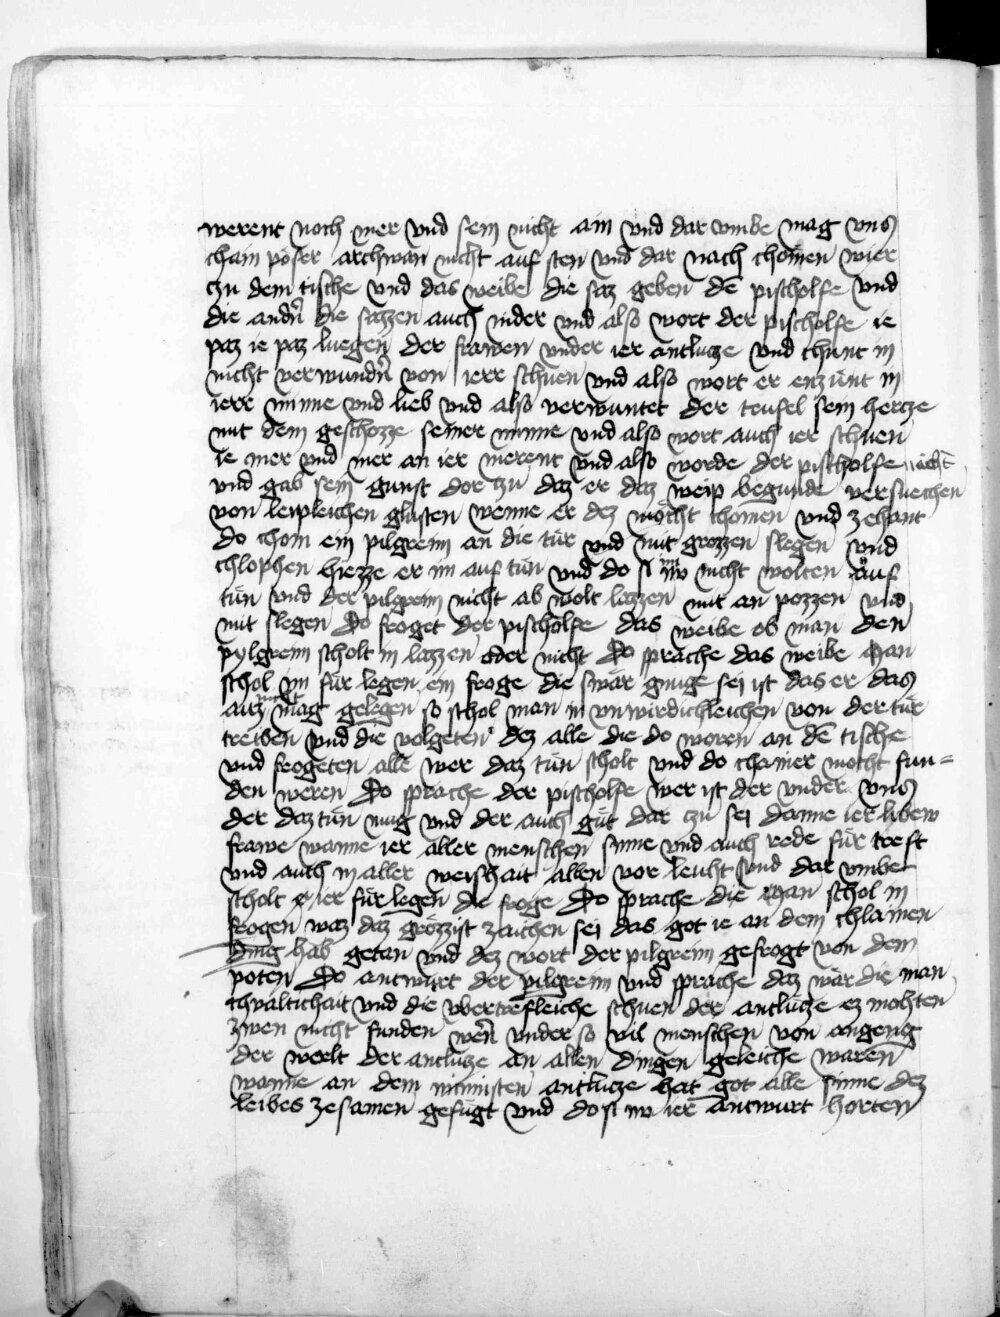 werent noch mer vnd sein nicht ain vnd dar vmbe mag vns
chain pöser archwan nicht auf sten vnd dar nach chömen wier
czu dem tische vnd das weibe die saz geben dē pischolfe vnd
die andn̄ die sazzen auch nider vnd also wort der pischolfe ie
paz ie paz luegen der frawen vnder ier antlucze vnd chunt in
nicht verwundn̄ von ierr schuen vnd also wort er enzünt in
ierr minne vnd lieb vnd also verwuntet der teufel sein hercze
mit dem geschozze seiner minne vnd also wort auch ier schuen
ie mer vnd mer an ier merent vnd also worde der pischolfe
vnd gab sein gunst dor zu daz er daz weip begunde versuechen
von leipleichen glusten wenne er dez möcht chomen vnd zehant
do chom ein pilgreim an die tür vnd mit grozzen slegen vnd
chlophen hiezze er im auf tün vnd do si im nicht wolten auf
tün vnd der pilgreim nicht ab wolt lazzen mit an pozzen vnd
mit slegen Do froget der pischolfe das weibe ob man den
pylgreim scholt in lazzen oder nicht Do sprache das weibe Man
schol im für legen ein froge die swär gnuge sei ist das er das
auz nicht mag gelegen so schol man in vnwirdichleichen von der tür
treiben vnd die volgeten dez alle die do woren an dē tische
vnd frogeten alle wer daz tün scholt vnd do chainer mocht fun=
den weren Do sprache der pischolfe wer ist der vnder vns
der daz tün mug vnd der auch güt dar zu sei danne ier libew
frawe wanne ier aller menschen sinne vnd auch rede für treft
vnd auch in aller weishait allen vor leuht vnd dar vmbe
scholt ier für legen die froge Do sprache die Man schol in
frogen waz daz grözzist zaichen sei das got ie an dem chlainen
ding hab getan vnd dez wort der pilgreim gefrogt von dem
poten Do antwurt der pilgreim vnd sprache daz wär die man
chualtichait vnd die vbertrefleiche schuen der antlücze ez mohten
zwen nicht funden wern̄ vnder so vil menschen von angeng
der werlt der antlücze an allen dingen geleiche waren
wanne an dem minnisten antlucze hat got alle sinne dez
leibes zesamen gefügt vnd do si nu ier antwurt horten